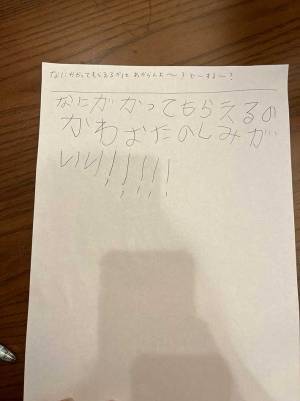 なにがかってもらえるかは わからんよ〜?どーする〜?
なにがかってもらえるの
かわおたのしみが
いい!!!!!!